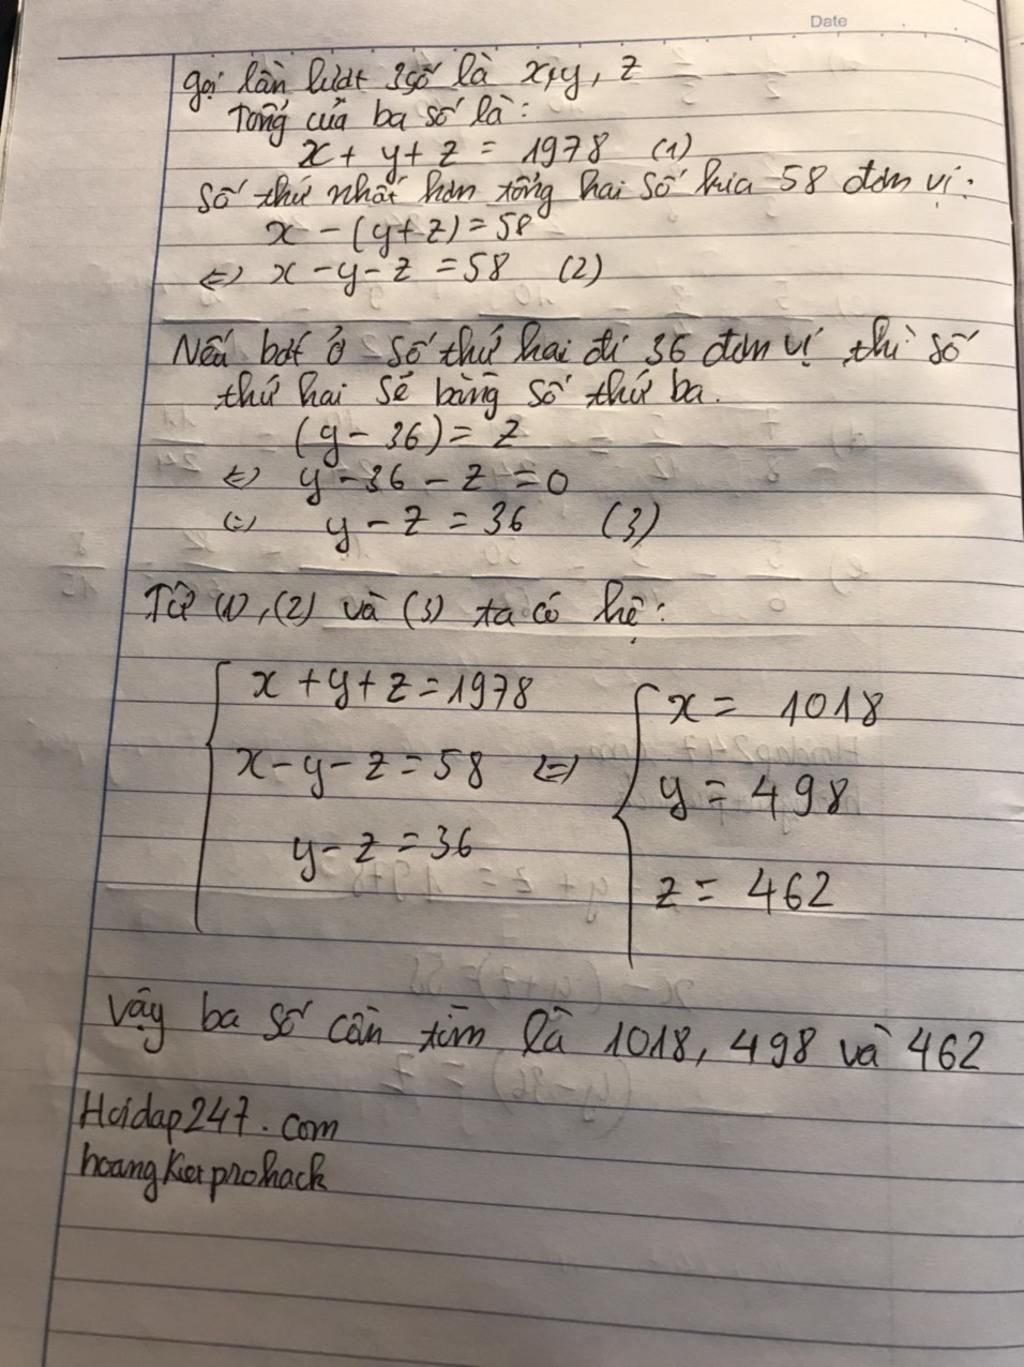 Date
gọi lần lượt 3 số là x, y, z
Tổng của ba số là:
x + y + z = 1978 (1)
Số thứ nhất hơn tổng hai số kia 58 đơn vị:
x - (y + z) = 58
⇔ x - y - z = 58 (2)
Nếu bớt ở số thứ hai đi 36 đơn vị thì số
thứ hai sẽ bằng số thứ ba.
(y - 36) = z
⇔ y - 36 - z = 0
⇔ y - z = 36 (3)
Từ (1), (2) và (3) ta có hệ:
x + y + z = 1978
x - y - z = 58 ⇔
y - z = 36
x = 1018
y = 498
z = 462
Vậy ba số cần tìm là 1018, 498 và 462
Hoidap247.com